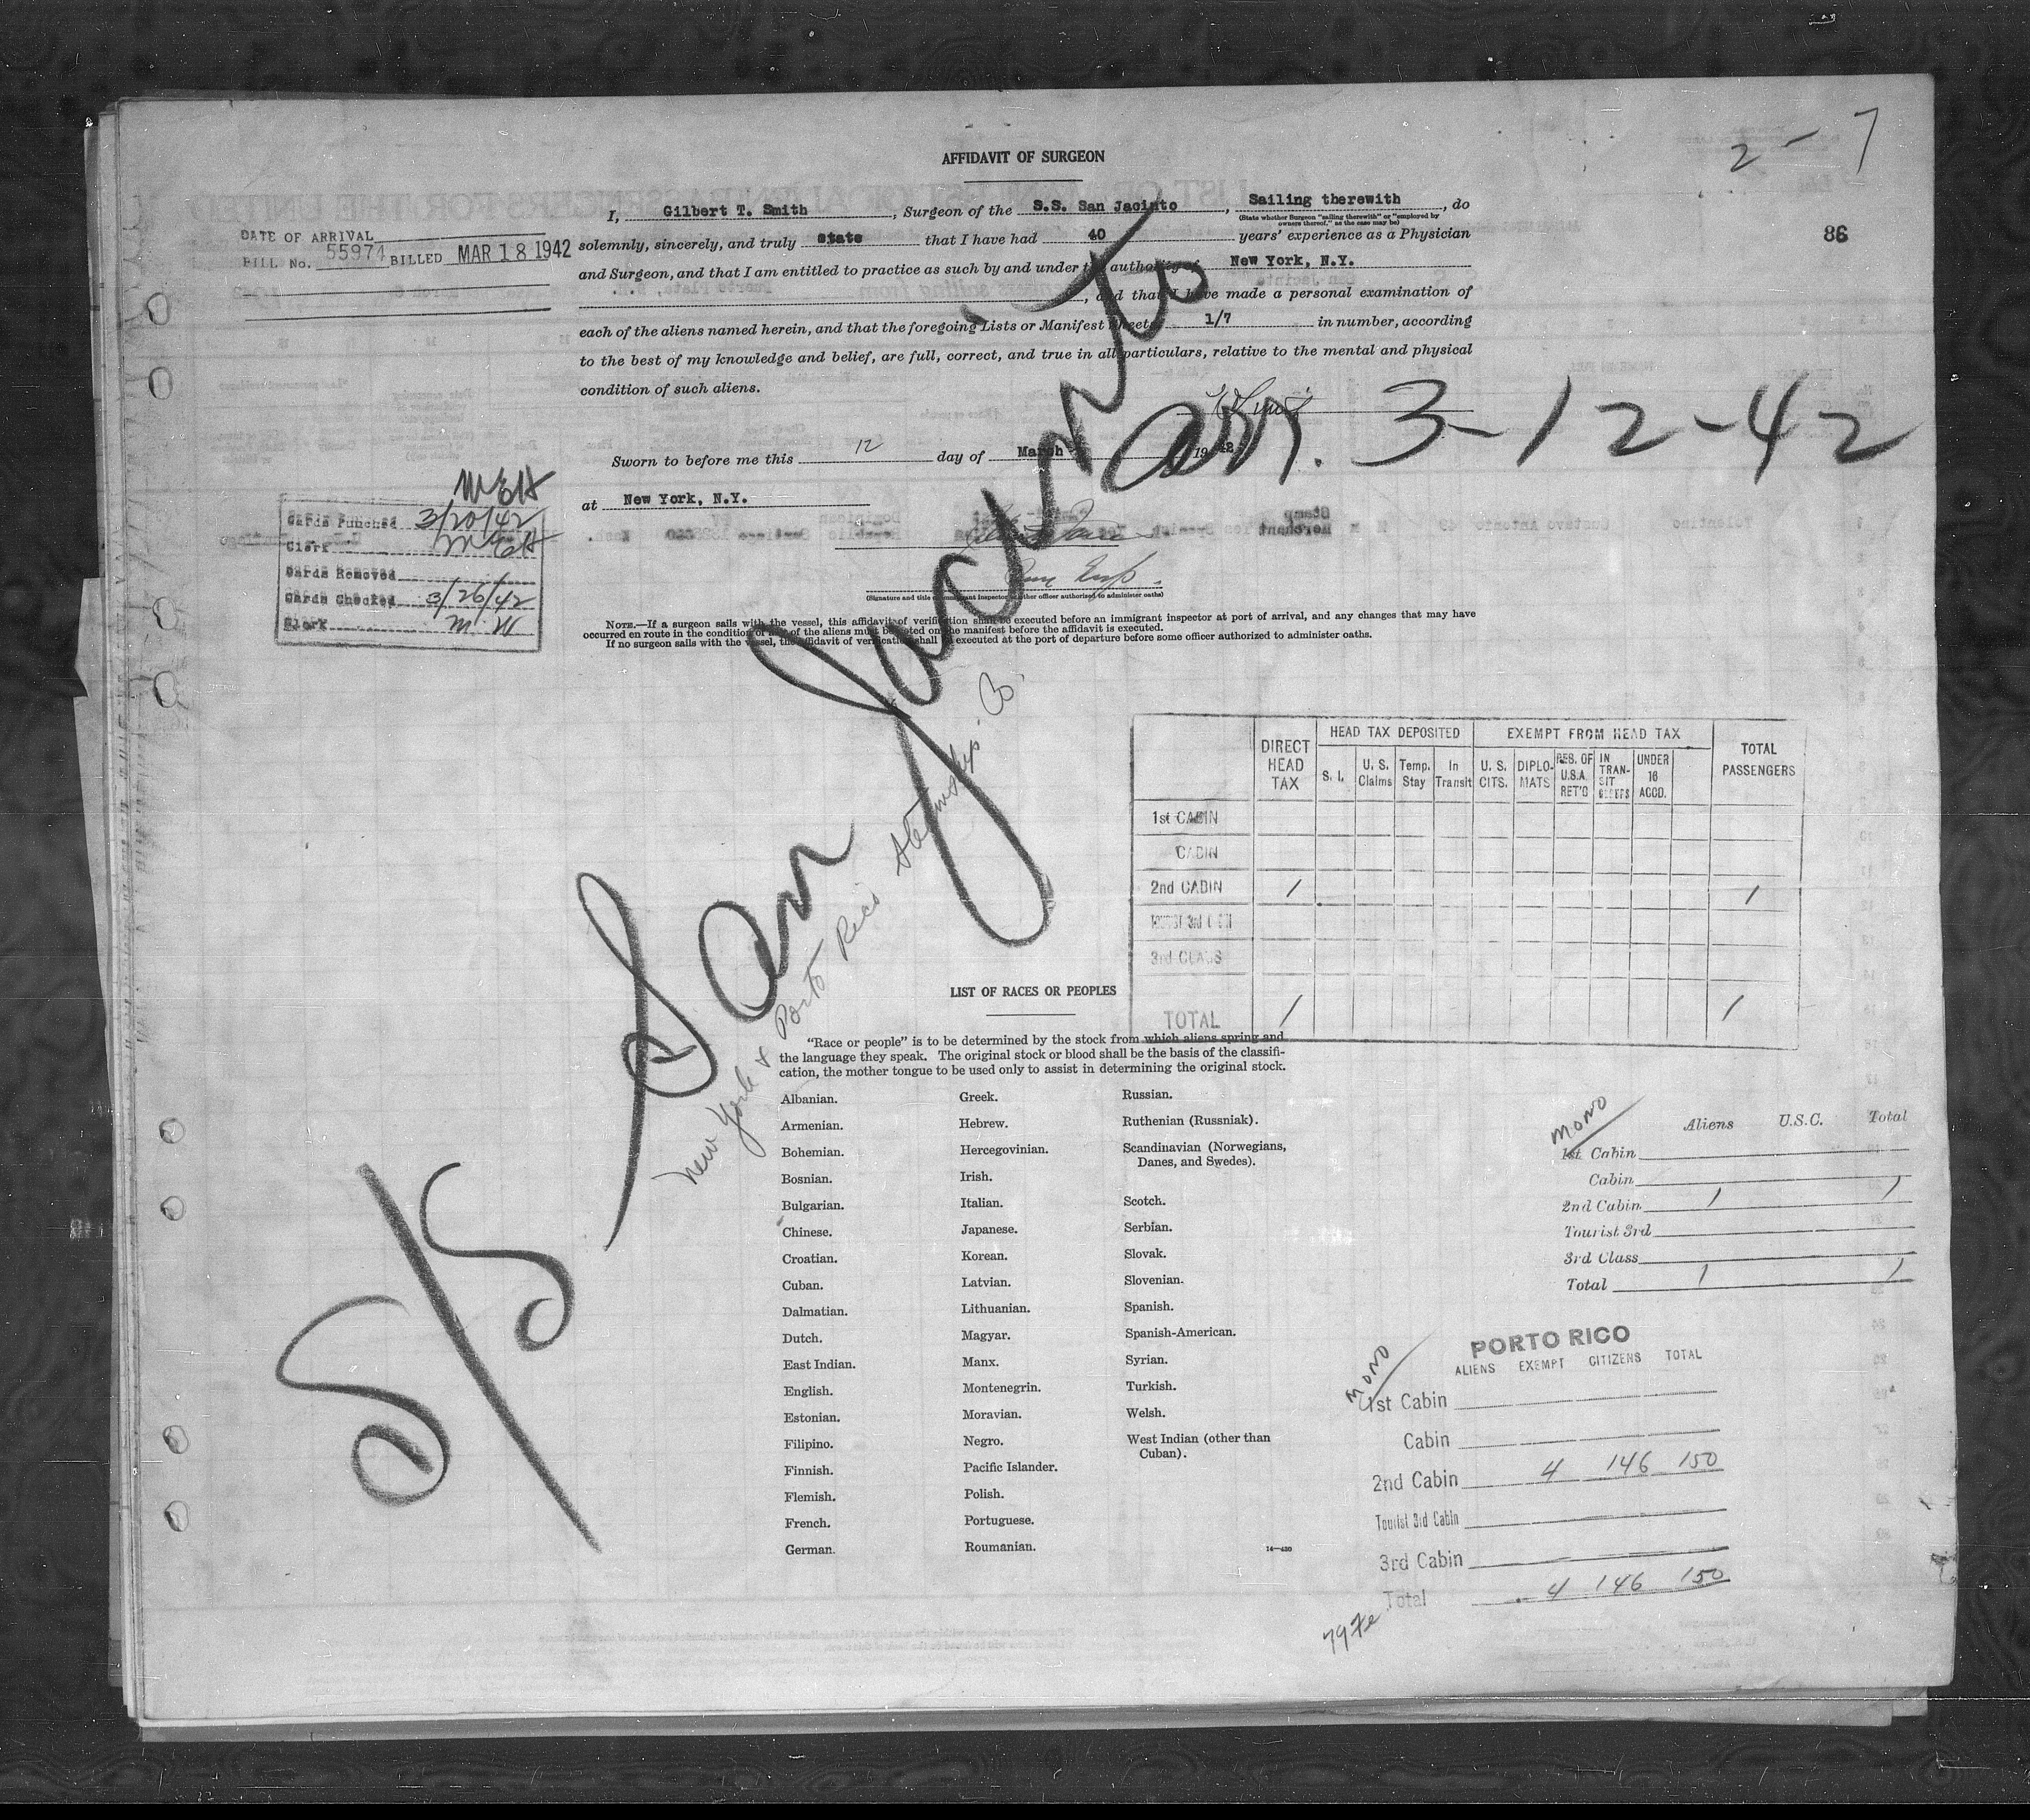 2 - 7
AFFIDAVIT OF SURGEON
I, Gilbert T. Smith, Surgeon of the S.S. San Jacinto, Sailing therewith, do
(State whether Surgeon "sailing therewith" or "employed by owners thereof," as the case may be)
86
DATE OF ARRIVAL
BILL No. 55974 BILLED MAR 18 1942
solemnly, sincerely, and truly state that I have had 40 years' experience as a Physician
and Surgeon, and that I am entitled to practice as such by and under the authority of New York, N.Y.
, and that I have made a personal examination of
each of the aliens named herein, and that the foregoing Lists or Manifest Sheets, 1/7 in number, according
to the best of my knowledge and belief, are full, correct, and true in all particulars, relative to the mental and physical
condition of such aliens.
arr. 3-12-42
Sworn to before me this 12 day of March 1942
at New York, N.Y.
MEH
Cards Punched 3/20/42
Clerk MEH
Cards Removed
Cards Checked 3/26/42
Clerk M W
(Signature and title of immigrant inspector or other officer authorized to administer oaths)
NOTE.—If a surgeon sails with the vessel, this affidavit of verification shall be executed before an immigrant inspector at port of arrival, and any changes that may have
occurred en route in the condition of any of the aliens must be noted on the manifest before the affidavit is executed.
If no surgeon sails with the vessel, the affidavit of verification shall be executed at the port of departure before some officer authorized to administer oaths.
S/S San Jacinto
New York & Porto Rico Steamship Co.
DIRECT HEAD TAX
HEAD TAX DEPOSITED
S. I.
U. S. Claims
Temp. Stay
In Transit
EXEMPT FROM HEAD TAX
U. S. CITS.
DIPLO- MATS
RES. OF U.S.A. RET'D
IN TRAN- SIT
UNDER 16 ACCD.
TOTAL PASSENGERS
1st CABIN
CABIN
2nd CABIN 1 1
TOURIST 3rd CABIN
3rd CLASS
TOTAL 1 1
LIST OF RACES OR PEOPLES
"Race or people" is to be determined by the stock from which aliens spring and
the language they speak. The original stock or blood shall be the basis of the classifi-
cation, the mother tongue to be used only to assist in determining the original stock.
Albanian.
Armenian.
Bohemian.
Bosnian.
Bulgarian.
Chinese.
Croatian.
Cuban.
Dalmatian.
Dutch.
East Indian.
English.
Estonian.
Filipino.
Finnish.
Flemish.
French.
German.
Greek.
Hebrew.
Hercegovinian.
Irish.
Italian.
Japanese.
Korean.
Latvian.
Lithuanian.
Magyar.
Manx.
Montenegrin.
Moravian.
Negro.
Pacific Islander.
Polish.
Portuguese.
Roumanian.
Russian.
Ruthenian (Russniak).
Scandinavian (Norwegians,
Danes, and Swedes).
Scotch.
Serbian.
Slovak.
Slovenian.
Spanish.
Spanish-American.
Syrian.
Turkish.
Welsh.
West Indian (other than
Cuban).
14—430
mono
Aliens U.S.C. Total
1st Cabin
Cabin
2nd Cabin 1 1
Tourist 3rd
3rd Class
Total 1 1
mono
PORTO RICO
ALIENS EXEMPT CITIZENS TOTAL
1st Cabin
Cabin
2nd Cabin 4 146 150
Tourist 3rd Cabin
3rd Cabin
Total 4 146 150